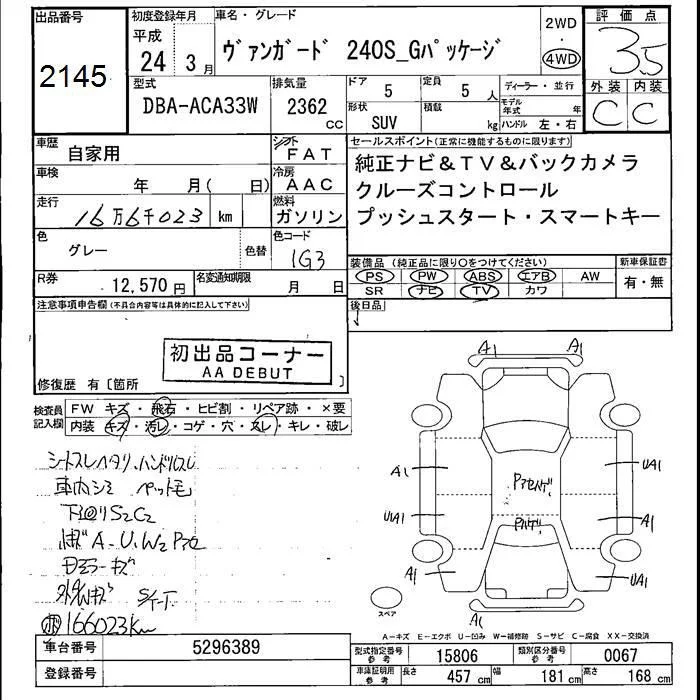 出品番号
2145
初度登録年月
平成
24 3月
車名・グレード
ヴァンガード 240S_Gパッケージ
2WD
・
4WD
評価点
3.5
外装 内装
C C
型式
DBA-ACA33W
排気量
2362
cc
ドア
5
定員
5 人
形状
SUV
積載
kg
ディーラー・並行
モデル年式 年
ハンドル 左・右
車歴
自家用
シフト
FAT
車検
年 月( 日)
冷房
AAC
走行
16万6千023 km
燃料
ガソリン
色
グレー
色替
色コード
1G3
R券
12,570円
名変通知期限
月 日
セールスポイント(正常に機能するものに限ります)
純正ナビ&TV&バックカメラ
クルーズコントロール
プッシュスタート・スマートキー
装備品(純正品に限り○をつけてください)
PS PW ABS エアB AW
SR ナビ TV カワ
新車保証書
有・無
後日品
注意事項申告欄(不具合内容等は具体的に記入して下さい)
初出品コーナー
AA DEBUT
修復歴 有〔箇所 〕
検査員記入欄
FW キズ・飛石・ヒビ割・リペア跡・×要
内装 キズ・汚レ・コゲ・穴・スレ・キレ・破レ
シートスレヘタリ、ハンドルスレ
車内シミ ペット毛
下回りS2C2
A-U、W2
ミラーキズ
166023km
A1
A1
A1
UA1
UA1
A1
A1
UA1
A1
スペア
A-キズ E-エクボ U-凹み W-補修跡 S-サビ C-腐食 XX-交換済
車台番号
5296389
登録番号
型式指定番号
参考
15806
類別区分番号
参考
0067
車庫証明用
参考
長さ
457 cm
幅
181 cm
高さ
168 cm